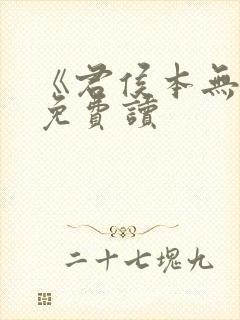 《君侯本無
免費讀
二十七塊九